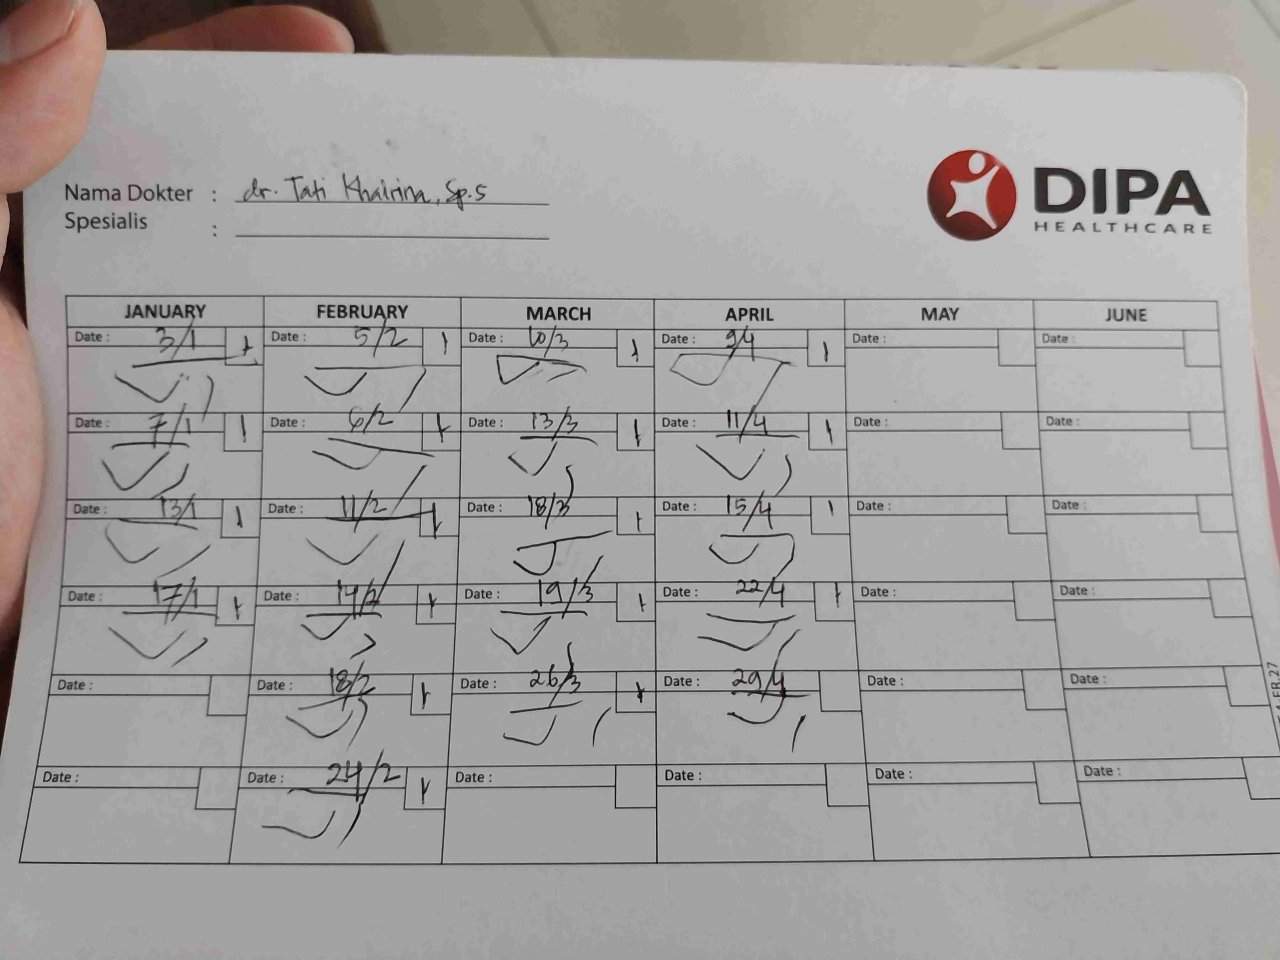 Nama Dokter : dr. Tati Khairina, Sp.S
Spesialis :
DIPA
HEALTHCARE
JANUARY FEBRUARY MARCH APRIL MAY JUNE
Date : 3/1 1 Date : 5/2 1 Date : 10/3 1 Date : 9/4 1 Date : Date :
Date : 7/1 1 Date : 6/2 1 Date : 13/3 1 Date : 11/4 1 Date : Date :
Date : 13/1 1 Date : 11/2 1 Date : 18/3 1 Date : 15/4 1 Date : Date :
Date : 17/1 1 Date : 14/2 1 Date : 19/3 1 Date : 22/4 1 Date : Date :
Date : Date : 18/2 1 Date : 26/3 1 Date : 29/4 Date : Date :
Date : Date : 24/2 1 Date : Date : Date : Date :